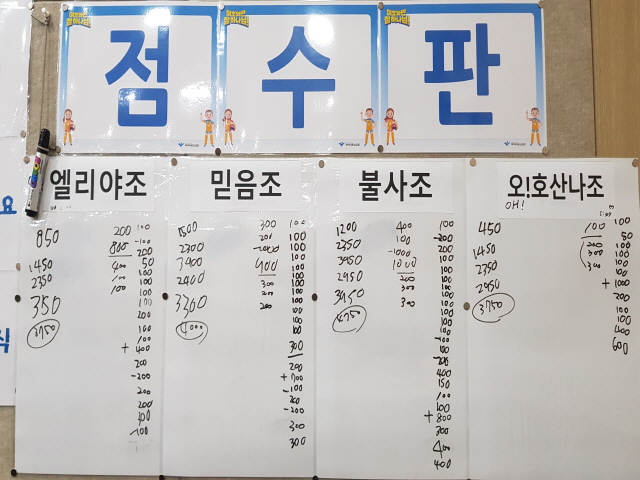 점 수 판
엘리야조
850
1450
2350
350
3750
200
800
400
100
100
100
-100
200
50
100
100
100
170
200
100
100
+ 400
200
-200
200
200
-100
믿음조
1500
2300
3900
2900
3300
4000
300
200
-1000
900
300
200
200
100
100
100
100
100
100
100
100
100
100
300
200
+ 700
-100
200
-200
300
300
불사조
1200
2350
3950
2950
3950
4750
400
100
-1000
1000
200
300
300
100
-200
200
100
100
100
100
100
100
100
-100
-200
400
150
100
100
+ 800
300
400
400
오!호산나조
OH!
450
1450
2350
2950
3750
100
200
300
300
100
50
100
100
100
+ 1000
200
100
100
400
600